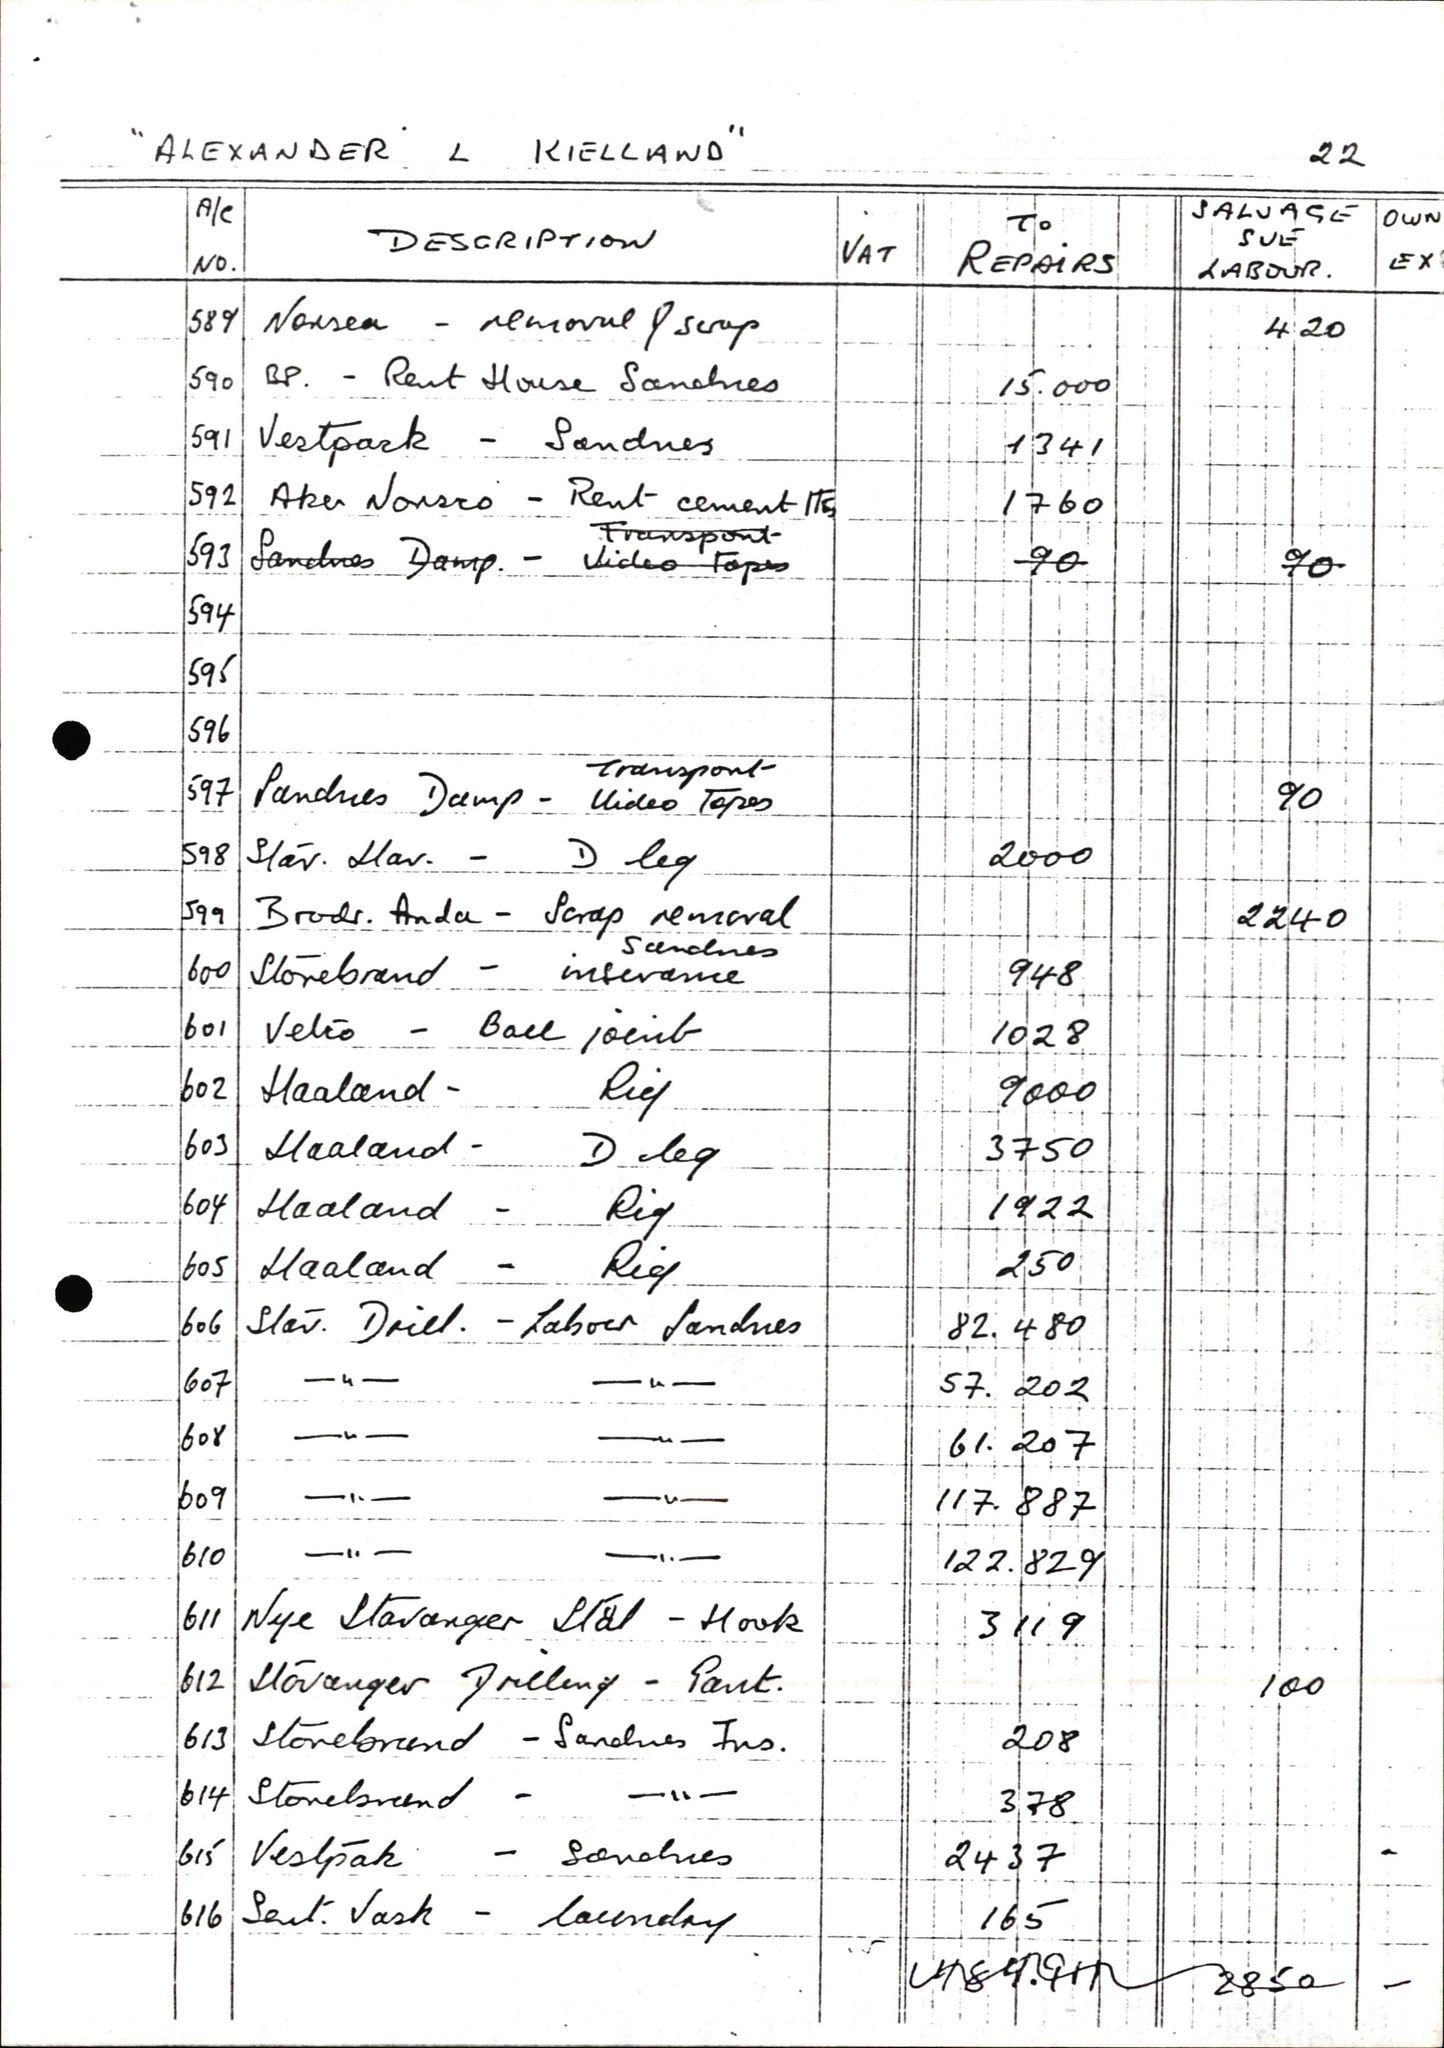 "ALEXANDER L KIELLAND" 22
A/C NO. DESCRIPTION VAT TO REPAIRS SALVAGE SUE LABOUR. OWN EX
589 Norsea - removal of scrap 420
590 BP. - Rent House Sandnes 15.000
591 Vestpark - Sandnes 1341
592 Aker Norsco - Rent cement 1760
593 Sandnes Damp. - Transport Video Tapes 90 90
594
595
596
597 Sandnes Damp - Transport Video Tapes 90
598 Stav. Hav. - D leg 2000
599 Brodr. Anda - Scrap removal 2240
600 Storebrand - Sandnes insurance 948
601 - Ball joint 1028
602 Haaland - Rig 9000
603 Haaland - D leg 3750
604 Haaland - Rig 1922
605 Haaland - Rig 250
606 Stav. Drill. - Labour Sandnes 82.480
607 —"— —"— 57.202
608 —"— —"— 61.207
609 —"— —"— 117.887
610 —"— —"— 122.829
611 Nye Stavanger Stål - Hook 3119
612 Stavanger Drilling - 100
613 Storebrand - Sandnes Ins. 208
614 Storebrand - —"— 378
615 Vestpak - Sandnes 2437
616 Sent. Vask - laundry 165
2850 -